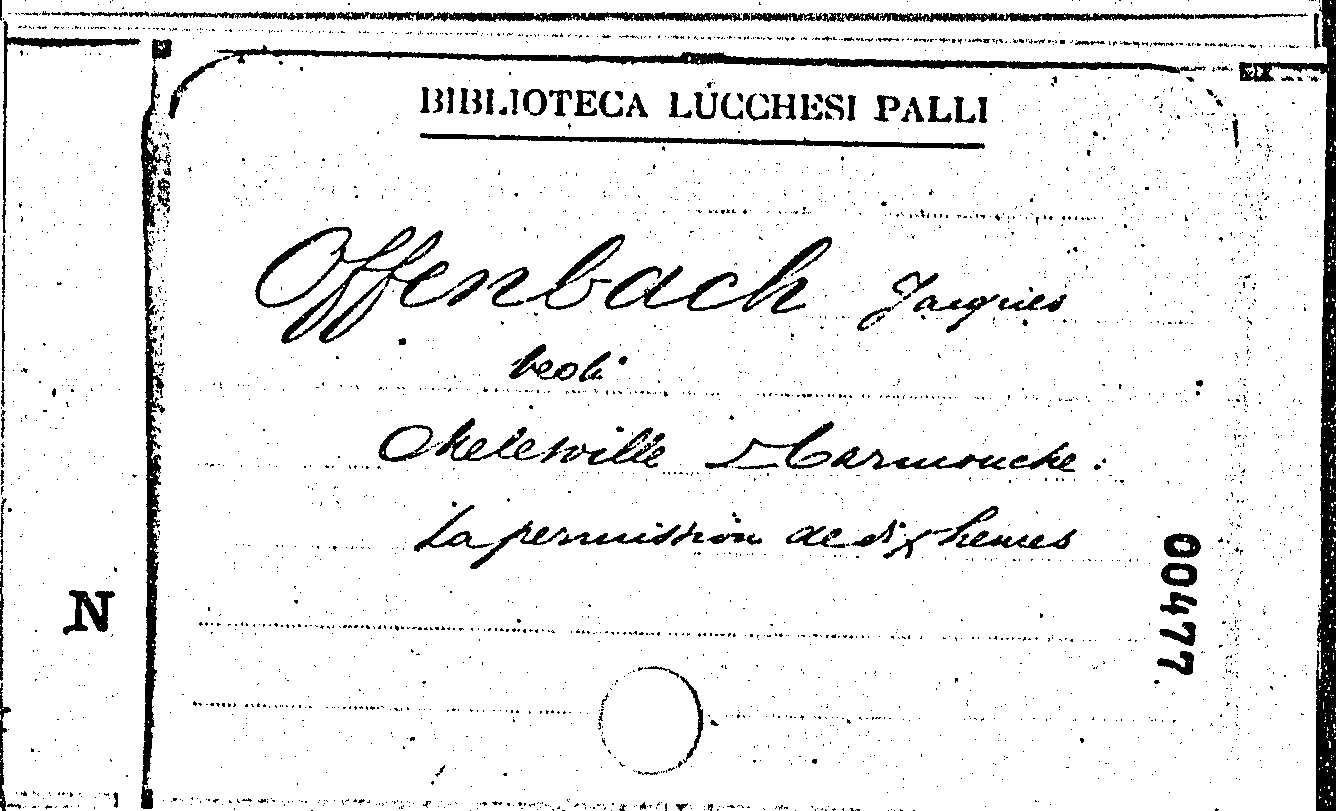 BIBLIOTECA LUCCHESI PALLI
Offenbach Jacques
vedi
Melesville Carmouche:
La permission de dix heures
N
00477